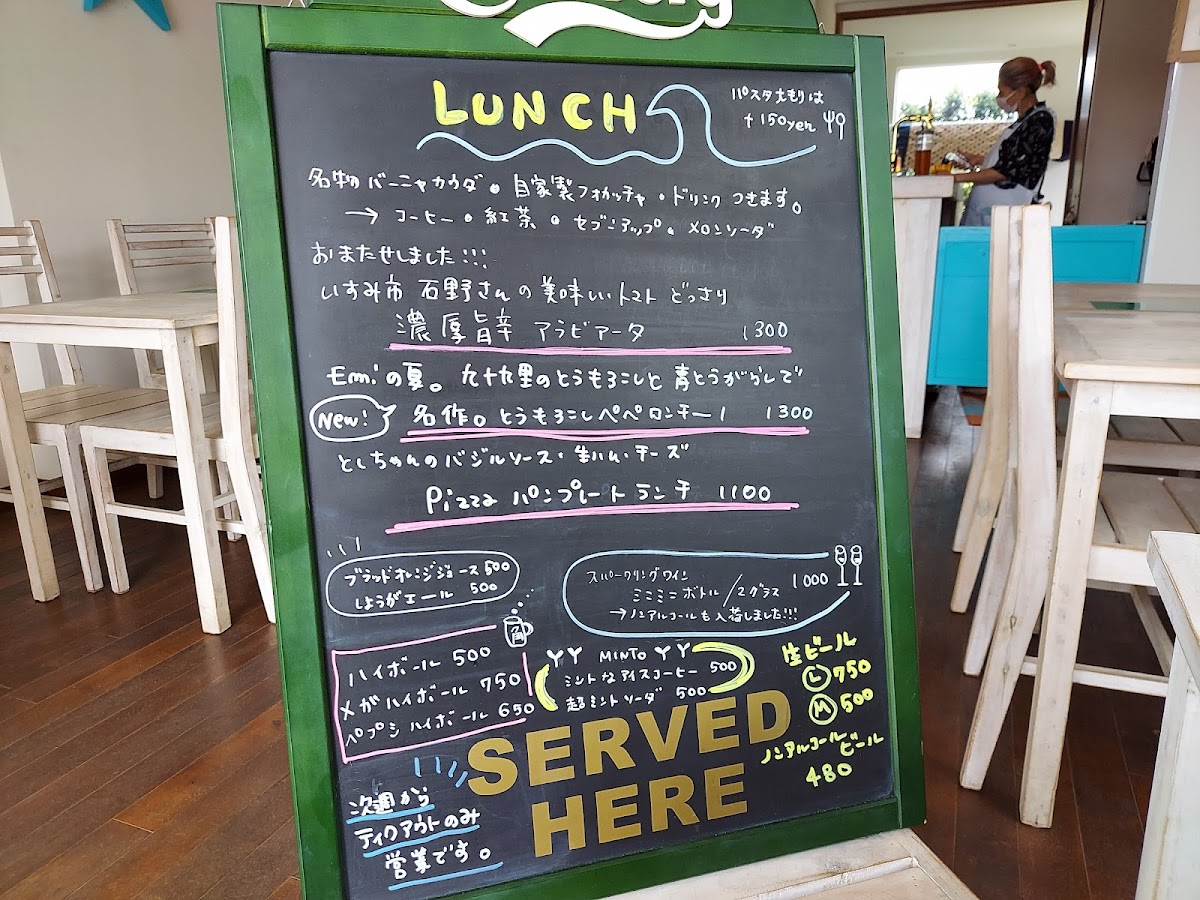 LUNCH
パスタ大もりは
+150yen
名物バーニャカウダ。自家製フォカッチャ・ドリンクつきます。
→ コーヒー。紅茶。セブンアップ。メロンソーダ
おまたせしました!!!
いすみ市 石野さんの美味しいトマト どっさり
濃厚旨辛 アラビアータ 1300
Emiの夏。九十九里のとうもろこしと青とうがらしで
New! 名作。とうもろこしペペロンチーノ 1300
としちゃんのバジルソース・生ハム・チーズ
Pizza パンプレートランチ 1100
ブラッドオレンジジュース 500
しょうがエール 500
スパークリングワイン
ミニミニボトル/2グラス 1000
→ノンアルコールも入荷しました!!!
角
ハイボール 500
メガハイボール 750
ペプシハイボール 650
MINTO
ミントなアイスコーヒー 500
超ミントソーダ 500
生ビール
L 750
M 500
ノンアルコール
ビール
480
SERVED
HERE
次週から
テイクアウトのみ
営業です。